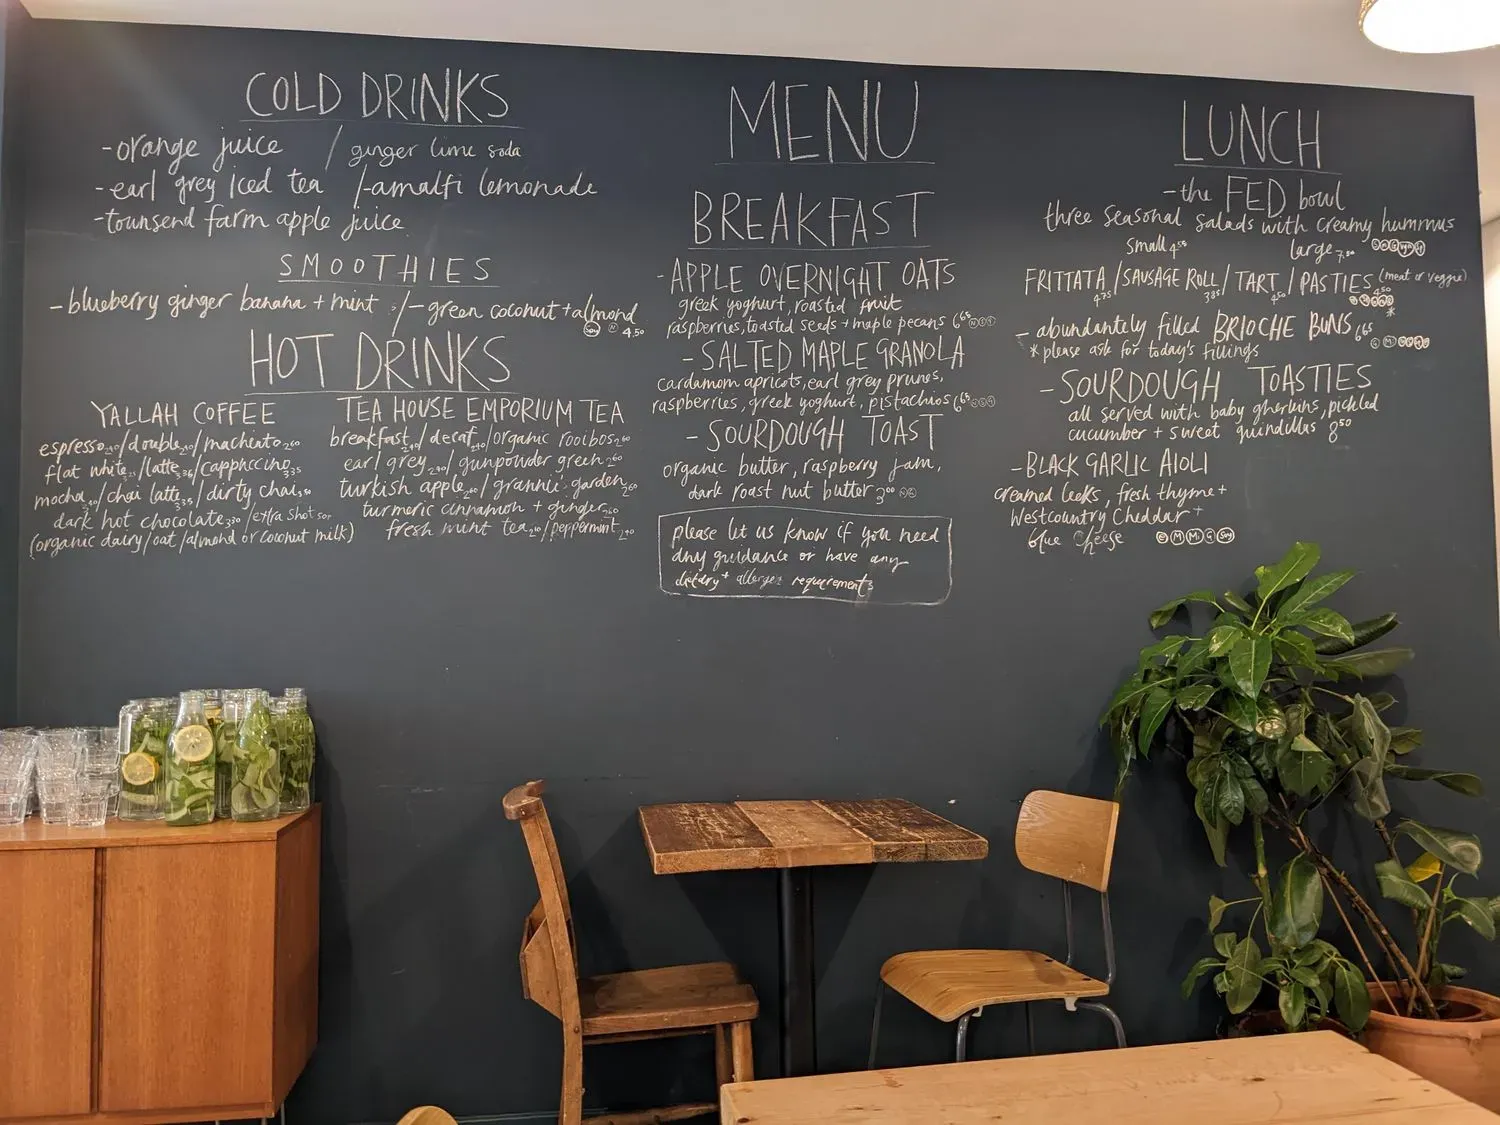 COLD DRINKS
- orange juice / ginger lime soda
- earl grey iced tea /- amalfi lemonade
- townsend farm apple juice
SMOOTHIES
- blueberry ginger banana + mint /- green coconut + almond
4.50
HOT DRINKS
YALLAH COFFEE
espresso 240 / double 240 / macheato 260
flat white / latte / cappuccino 335
mocha / chai latte / dirty chai
dark hot chocolate 330 / extra shot 50p
(organic dairy / oat / almond or coconut milk)
TEA HOUSE EMPORIUM TEA
breakfast 240 / decaf 240 / organic rooibos 260
earl grey 240 / gunpowder green 260
turkish apple 260 / grannie's garden 260
turmeric cinnamon + ginger 260
fresh mint tea 240 / peppermint 240
MENU
BREAKFAST
- APPLE OVERNIGHT OATS
greek yoghurt, roasted fruit
raspberries, toasted seeds + maple pecans 6.65
- SALTED MAPLE GRANOLA
cardamom apricots, earl grey prunes,
raspberries, greek yoghurt, pistachios 6.65
- SOURDOUGH TOAST
organic butter, raspberry jam,
dark roast nut butter 3.00
please let us know if you need
any guidance or have any
dietary + allergen requirements
LUNCH
- the FED bowl
three seasonal salads with creamy hummus
small 4.50 large 7.50
FRITTATA 4.75 / SAUSAGE ROLL 3.85 / TART 4.50 / PASTIES 4.50 (meat or veggie)
- abundantely filled BRIOCHE BUNS 6.65 *
* please ask for today's fillings
- SOURDOUGH TOASTIES
all served with baby gherkins, pickled
cucumber + sweet guindillas 8.50
- BLACK GARLIC AIOLI
creamed leeks, fresh thyme +
Westcountry Cheddar +
blue cheese E M Mi G Soy